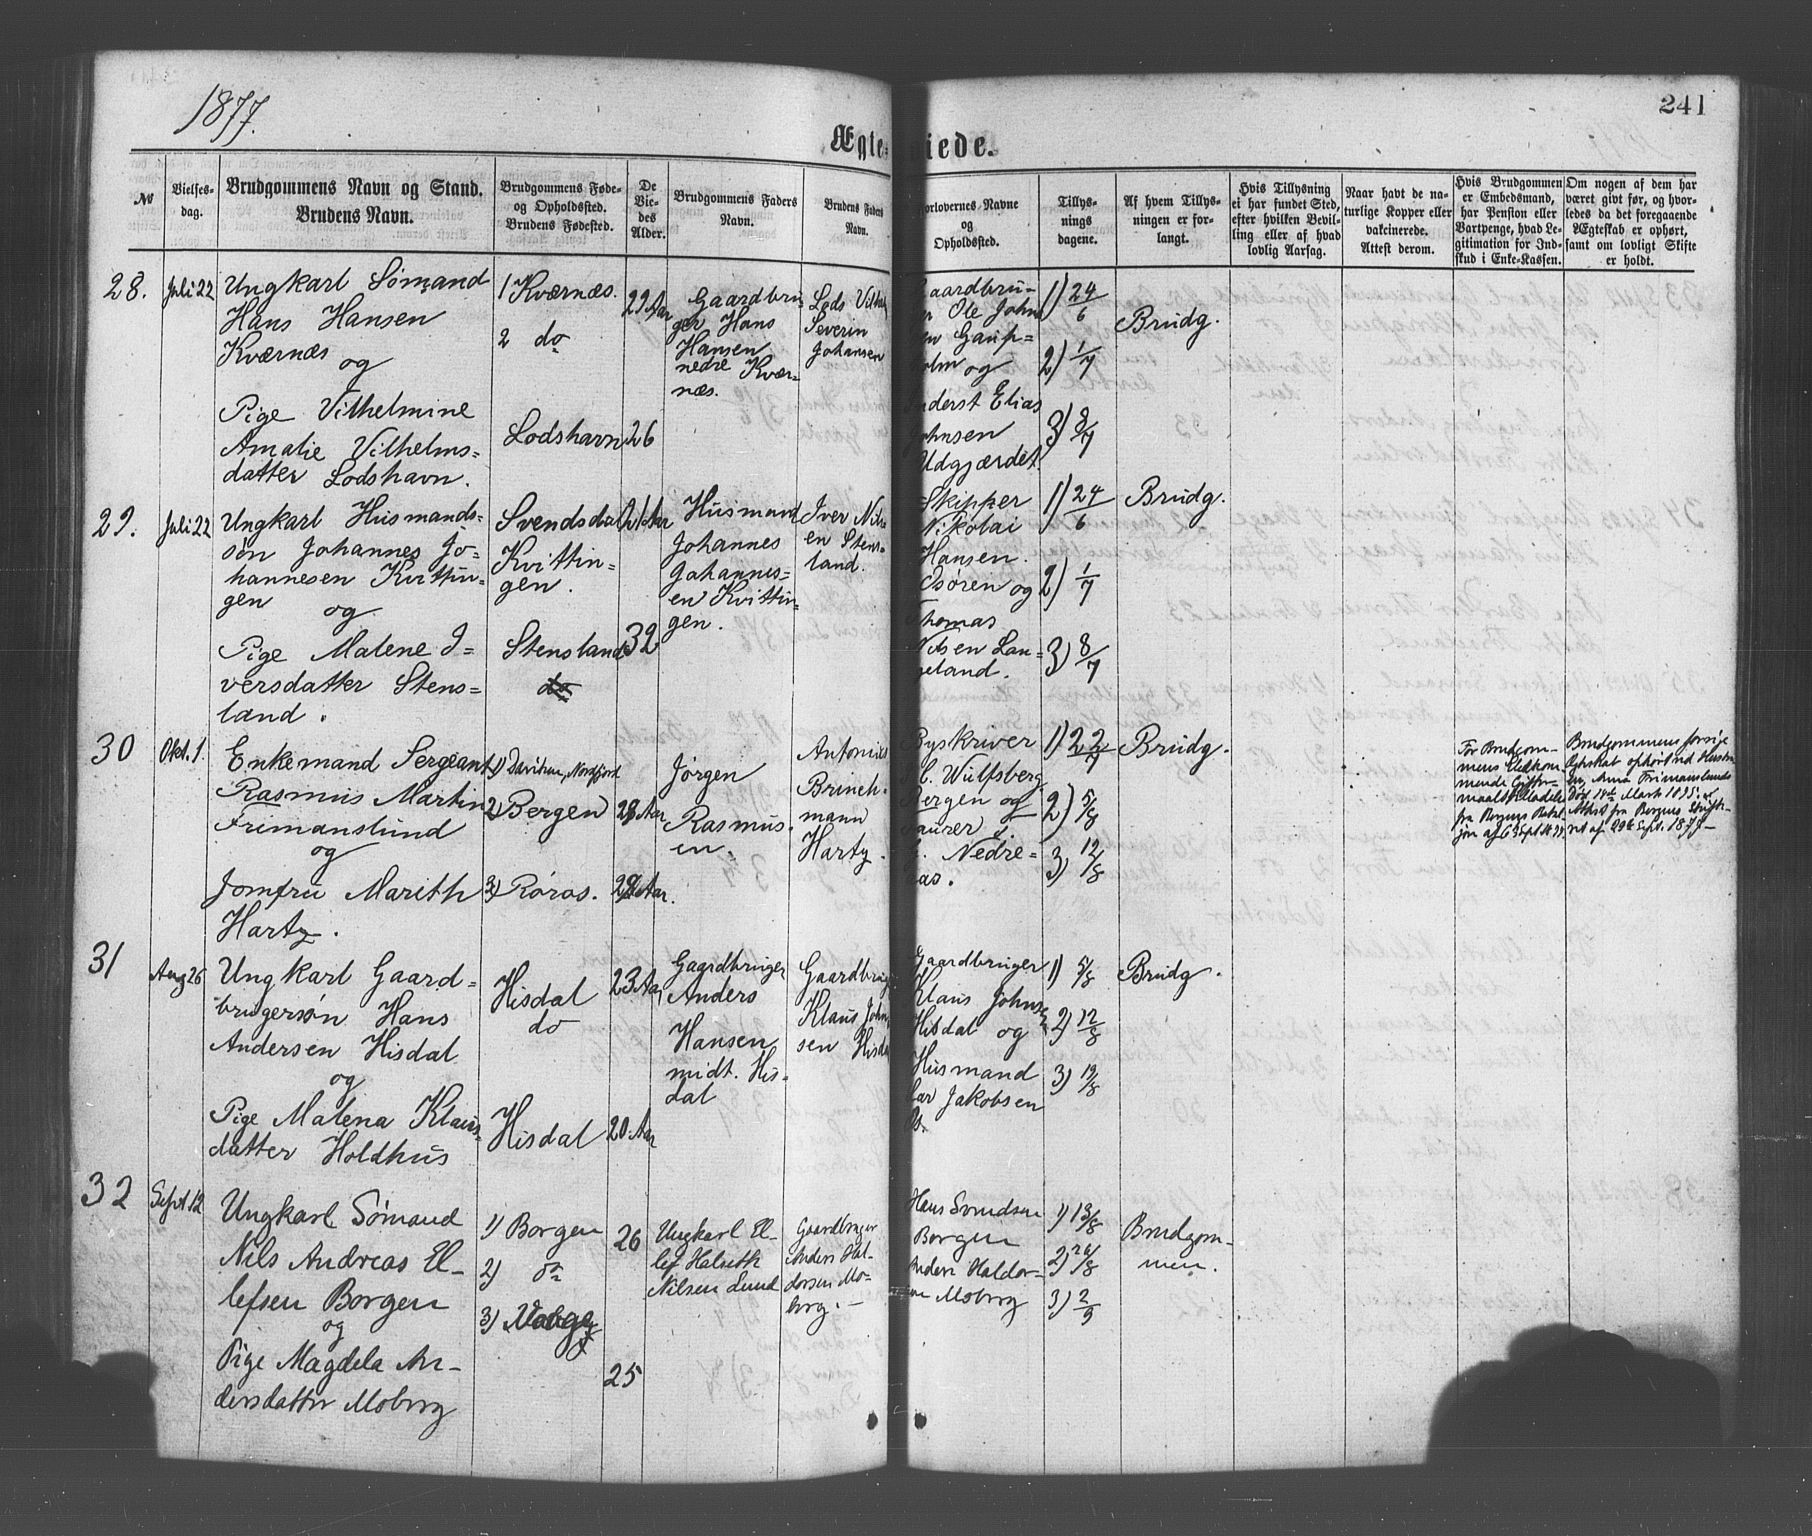 1877.
241
Ægte-
iede.
No
Vielses-
dag.
Brudgommens Navn og Stand.
Brudens Navn.
Brudgommens Føde-
og Opholdssted.
Brudens Fødested.
De
Vie-
des
Alder.
Brudgommens Faders
Navn.
Brudens Faders
Navn.
Forlovernes Navne
og
Opholdssted.
Tillys-
nings
dagene.
Af hvem Tillys-
ningen er for-
langt.
Hvis Tillysning
ei har fundet Sted,
efter hvilken Bevil-
ling eller af hvad
lovlig Aarsag.
Naar havt de na-
turlige Kopper eller
vakcinerede.
Attest derom.
Hvis Brudgommen
er Embedsmand,
har Pension eller
Vartpenge, hvad Le-
gitimation for Ind-
skud i Enke-Kassen.
Om nogen af dem har
været givt før, og hvor-
ledes da det foregaaende
Ægteskab er ophørt,
samt om lovligt Skifte
er holdt.
28.
Juli 22
Ungkarl Sømand
Hans Hansen
Kværnæs
og
Pige Vilhelmine
Amalie Vilhelms-
datter Lodshavn.
1 Kværnæs.
2 do
Lodshavn
29 Aar
26
Gaardbru-
ger Hans
Hansen
nedre Kvær-
næs.
Lods Vilh
Severin
Johansen
Gaardbru-
Ole John
en Gaup-
holm og
Anderst Elias
Johnsen
Udgjærdet.
1) 24/6
2) 1/7
3) 8/7
Brudg.
29.
Juli 22
Ungkarl Husmands-
søn Johannes Jo-
hannesen Kvittin-
gen og
Pige Malene I-
versdatter Stens-
land.
Svendsdal
Kvittin-
gen.
Stensland
do
21 Aar
32
Husmand
Johannes
Johannes-
en Kvittin-
gen.
Iver Nils-
en Stens-
land.
Skipper
Nikolai
Hansen.
Osøren og
Thomas
Nilsen Lan-
geland.
1) 24/6
2) 1/7
3) 8/7
Brudg.
30
Okt. 1.
Enkemand Sergeant
Rasmus Martin
Frimanslund
og
Jomfru Marith
Hartz.
1) Daviken, Nordfjord
2) Bergen
3) Røros.
28 Aar
29 Aar.
Jørgen
Rasmus-
en.
Antonius
Brinch-
mann
Hartz.
Byskriver
C. Wulfsberg
Bergen og
Nedre-
aas.
1) 22/7
2) 5/8
3) 12/8
Brudg.
For Brudgom-
mens
fra Bergens
jon af 6 Sept 1877.
Brudgommens forrige
Egteskab ophørt ved Hustru-
en, Anna Frimanslunds
Død 14de Marts 1875. cf
Attest fra Bergens Skifte-
ret af 29de Sept. 1877–
31
Aug 26
Ungkarl Gaard-
brugersøn Hans
Andersen Hisdal
og
Pige Malena Klaus-
datter Holdhus
Hisdal
do
Hisdal
23 Aar
20 Aar
Gaardbruger
Anders
Hansen
midt. His-
dal
Gaardbrug
Klaus John-
sen Hisda
Gaardbruger
Klaus Johnsen
Hisdal og
Husmand
Jakobsen
1) 5/8
2) 12/8
3) 19/8
Brudg.
32
Sept. 12
Ungkarl Sømand
Nils Andreas El-
lefsen Borgen
og
Pige Magdela An-
dersdatter Moberg
1) Borgen
2) do
3)
26
25
Ungkarl El-
lef Halseth
Nilsen Lund
Gaardbruger
Anders Hal-
dorsen Mo-
berg.–
Hans Svendsen
Borgen
Anders Haldor-
en Moberg
1) 13/8
2) 26/8
3) 2/9
Brudgom-
men.